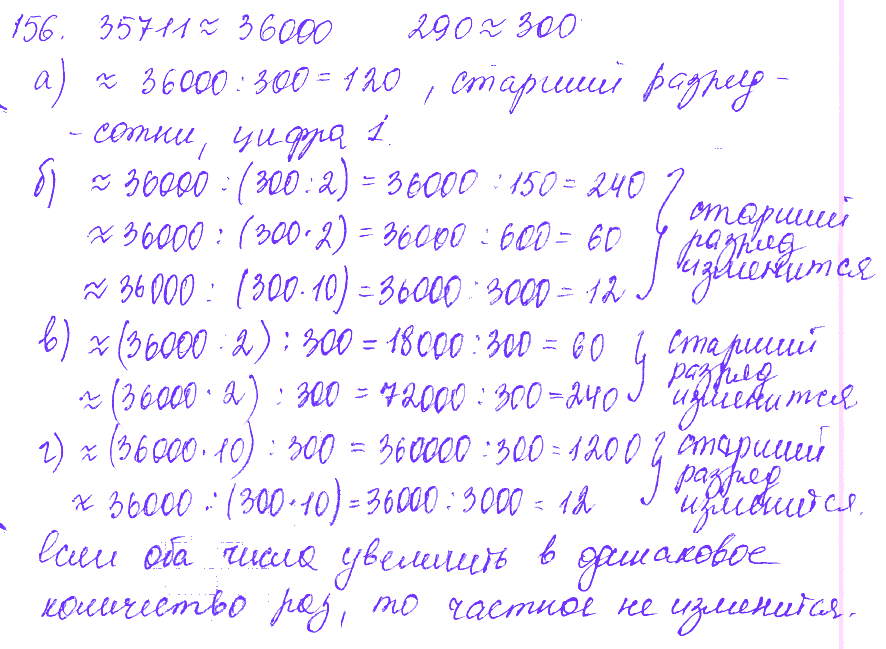 156. 35711 ≈ 36000 290 ≈ 300
а) ≈ 36000 : 300 = 120, старший разряд -
- сотни, цифра 1.
б) ≈ 36000 : (300 : 2) = 36000 : 150 = 240
≈ 36000 : (300 · 2) = 36000 : 600 = 60
≈ 36000 : (300 · 10) = 36000 : 3000 = 12
старший
разряд
изменится
в) ≈ (36000 : 2) : 300 = 18000 : 300 = 60
≈ (36000 · 2) : 300 = 72000 : 300 = 240
старший
разряд
изменится
г) ≈ (36000 · 10) : 300 = 360000 : 300 = 1200
≈ 36000 : (300 · 10) = 36000 : 3000 = 12
старший
разряд
изменится.
Если оба числа увеличить в одинаковое
количество раз, то частное не изменится.